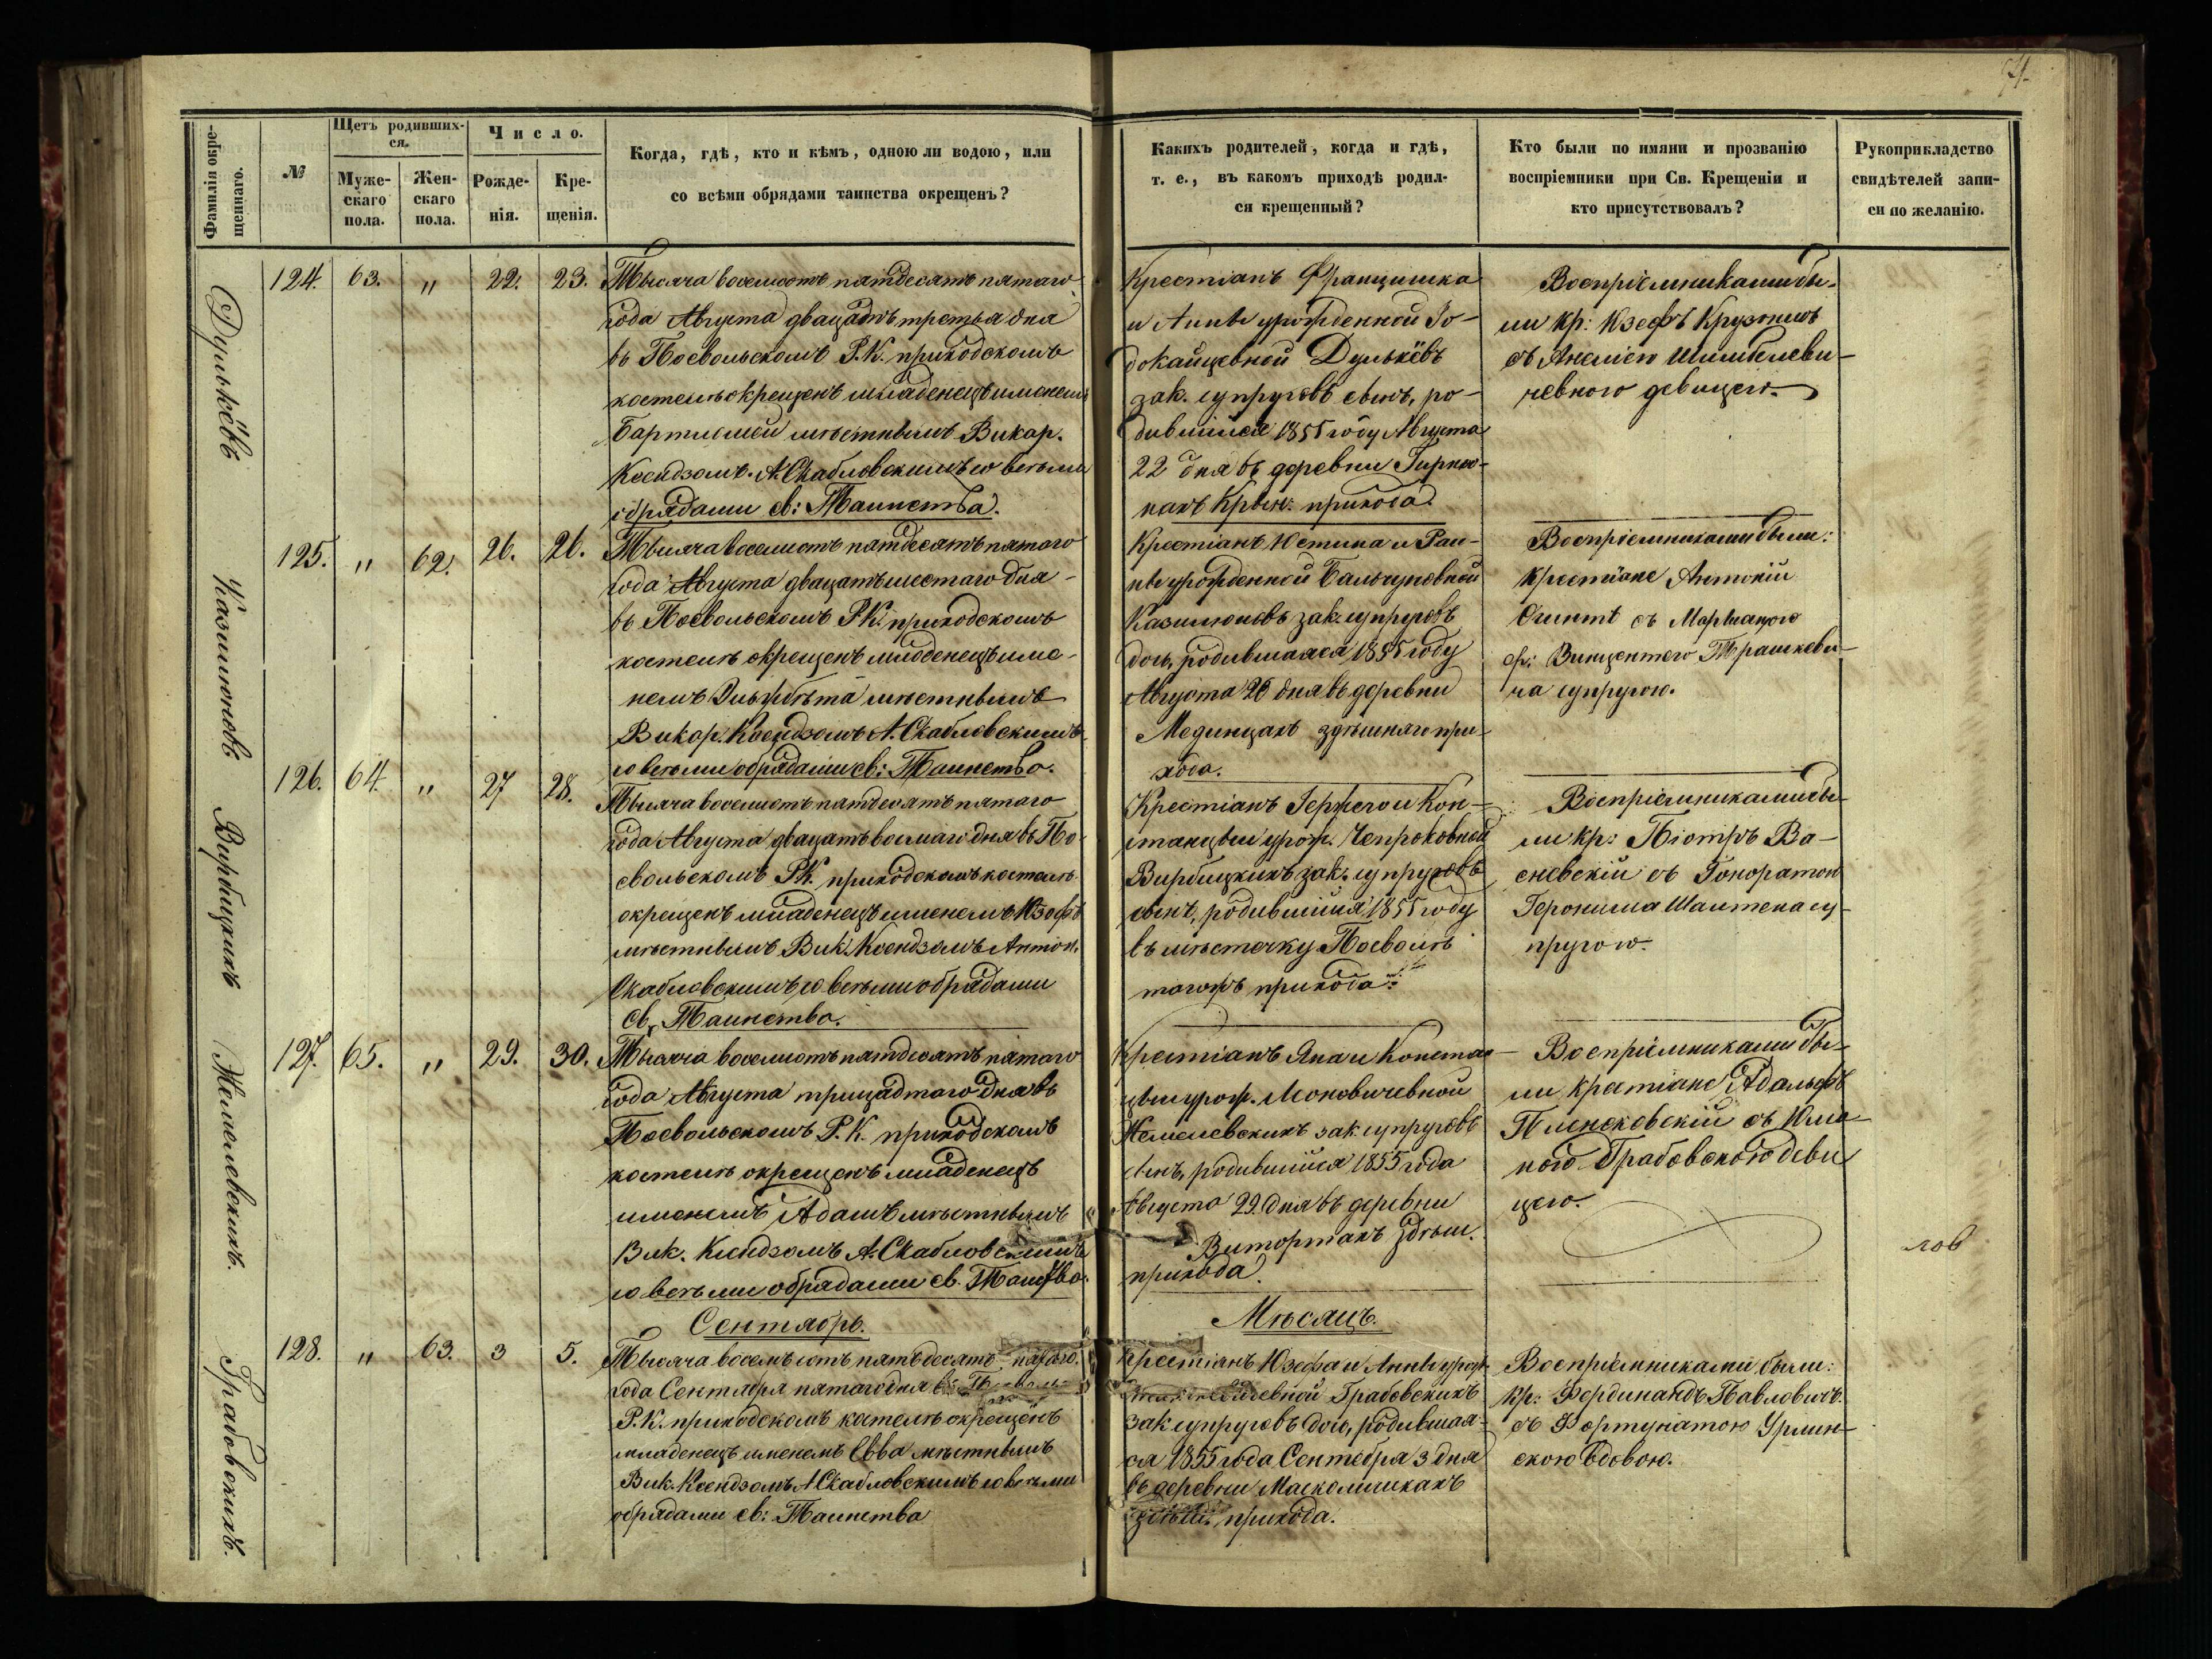 74.
Фамилія окре-
щеннаго.
№
Щетъ родивших-
ся.
Муже-
скаго
пола.
Жен-
скаго
пола.
Число.
Рожде-
нія.
Кре-
щенія.
Когда, гдѣ, кто и кѣмъ, одною ли водою, или
со всѣми обрядами таинства окрещенъ?
Какихъ родителей, когда и гдѣ,
т. е., въ какомъ приходѣ родил-
ся крещенный?
Кто были по имяни и прозванію
воспріемники при Св. Крещеніи и
кто присутствовалъ?
Рукоприкладство
свидѣтелей запи-
си по желанію.
Дулькёвъ
124. 63. " 22. 23.
Тысяча восемсотъ пятдесятъ пятаго
года Августа двацать третья дня
въ Посвольскомъ Р.К. приходскомъ
костелѣ окрещенъ младенецъ именемъ
Бартломей мѣстнымъ Викар.
Ксендзомъ А. Скабловскимъ со всѣми
обрядами св: Таинства.
Крестіанъ Францишка
и Анны урожденной
Дулькёвъ
зак. супруговъ сынъ, ро-
дившийся 1855 году Августа
22 дня въ деревни
прихода.
Воспріемниками бы-
ли кр: Юзефъ
съ Анелiею
девицею.
Казимоновъ
125. " 62. 26. 26.
Тысяча восемсотъ пятдесятъ пятаго
года Августа двацать шестаго дня
въ Посвольскомъ Р.К. приходскомъ
костелѣ окрещенъ младенецъ име-
немъ Эльжбѣта мѣстнымъ
Викар. Ксендзомъ А. Скабловскимъ
со всѣми обрядами св: Таинства.
Крестіанъ Юстина и
урожденной
зак. супруговъ
дочь, родившаяся 1855 году
Августа 26 дня въ деревни
здѣшняго при-
хода.
Воспріемниками были:
Крестіане Антоній
съ Маріанною
Винцентего Трашкеви-
ча супругою.
Вирбицкихъ
126. 64. " 27 28.
Тысяча восемсотъ пятдесятъ пятаго
года Августа двацать восмаго дня въ По-
свольскомъ Р.К. приходскомъ костелѣ
окрещенъ младенецъ именемъ Юзефъ
мѣстнымъ Вик. Ксендзомъ Антон.
Скабловскимъ, со всѣми обрядами
св. Таинства.
Крестіанъ и Кон-
станцыи урож.
Вирбицкихъ зак. супруговъ
сынъ, родившийся 1855 году
въ мѣстечку Посволѣ
тогожъ прихода.
Воспріемниками бы-
ли кр: Піотръ Ва-
сневскій съ Гоноратою
Героніма су-
пругою.
Жемелевскихъ.
127. 65. " 29. 30.
Тысяча восемсотъ пятдесятъ пятаго
года Августа трицадтаго дня въ
Посвольскомъ Р.К. приходскомъ
костелѣ окрещенъ младенецъ
именемъ Адамъ мѣстнымъ
Вик. Ксендзомъ А. Скабловскимъ
со всѣми обрядами св. Таинства.
Крестіанъ Яна и Констан-
цыи урож. Моновичевной
Жемелевскихъ зак. супруговъ
сынъ, родившийся 1855 года
Августа 29. дня въ деревни
здѣш.
прихода.
Воспріемниками бы-
ли крестіане Адальфъ
съ Юлія-
ною Грабовскою деви
цею.
лов
Сентябрь.
Мѣсяцъ.
Грабовскихъ.
128. " 63. 3 5.
Тысяча восемъсотъ пятьдесятъ пятаго
года Сентября пятаго дня въ
Р.К. приходскомъ костелѣ окрещенъ
младенецъ именемъ Евва мѣстнымъ
Вик. Ксендзомъ А Скабловскимъ со всѣми
обрядами св: Таинства
Крестіанъ Юзефа и Анны урож.
Грабовскихъ
зак супруговъ дочь, родившая-
ся 1855 года Сентебря 3 дня
въ деревни
прихода.
Воспріемниками были:
кр: Фердинандъ Павловичъ.
съ Фортунатою Урлин-
скою вдовою.